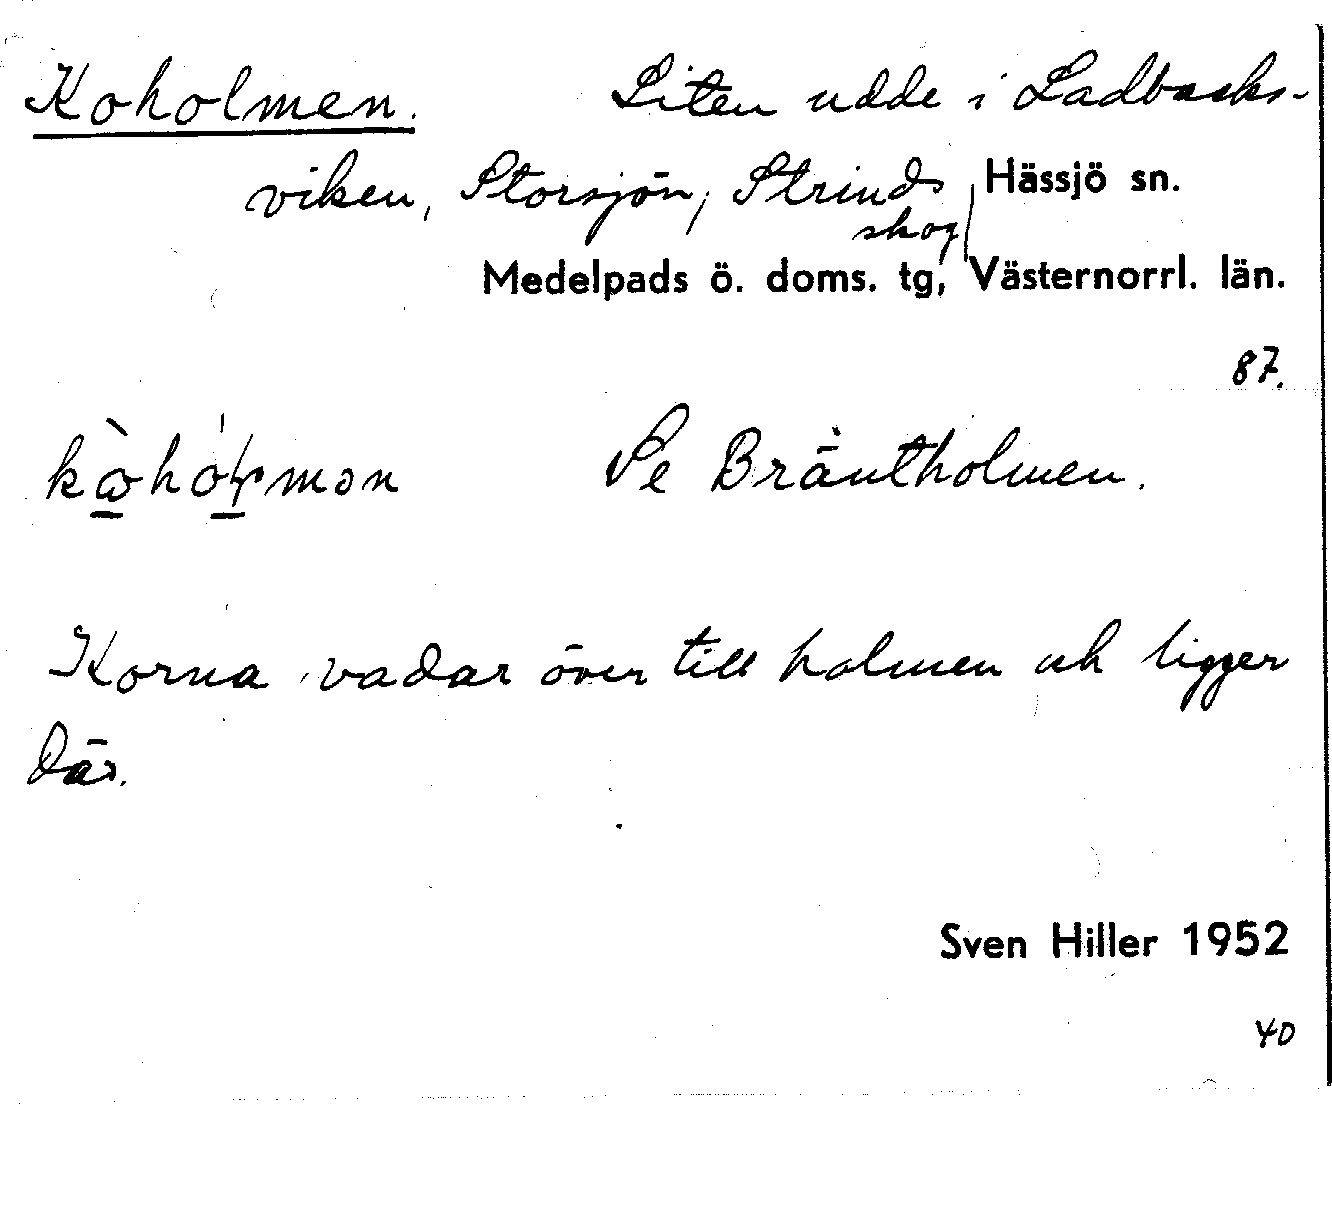 Koholmen. Liten udde i Ladbacks-
viken, Storsjön, Strinds
skog Hässjö sn.
Medelpads ö. doms. tg, Västernorrl. län.
87.
Se Bräntholmen.
Korna vadar över till holmen och ligger
där.
Sven Hiller 1952
40